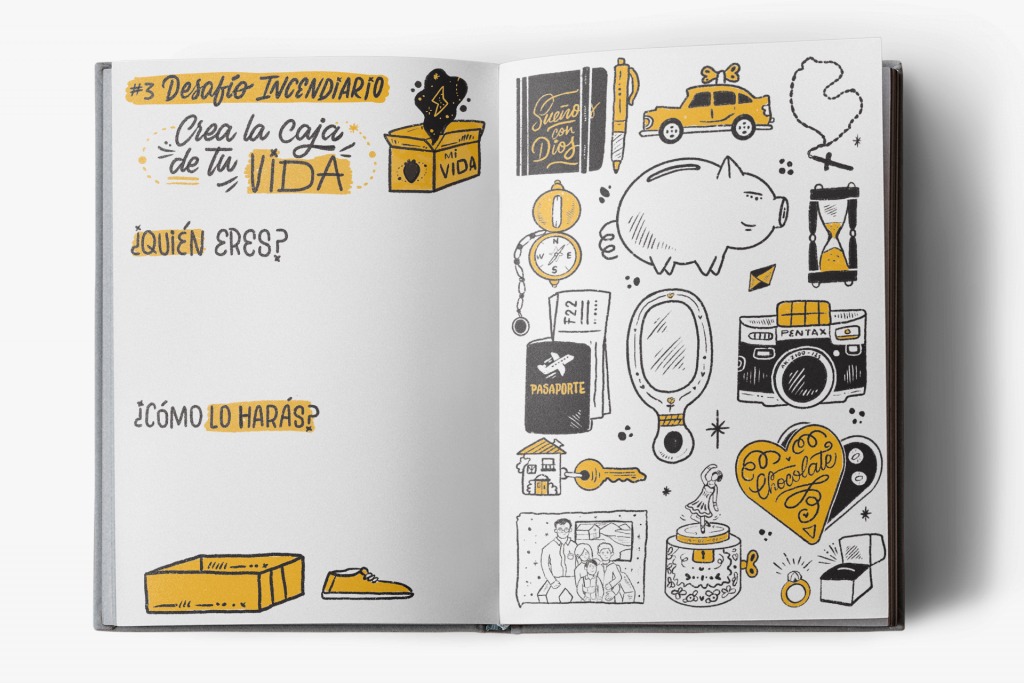 #3 Desafío INCENDIARIO
Crea la caja
de tu VIDA
Mi
VIDA
¿QUIÉN ERES?
¿CÓMO LO HARÁS?
Sueños
con
Dios
N
W E
S
F22
PASAPORTE
PENTAX
Chocolate